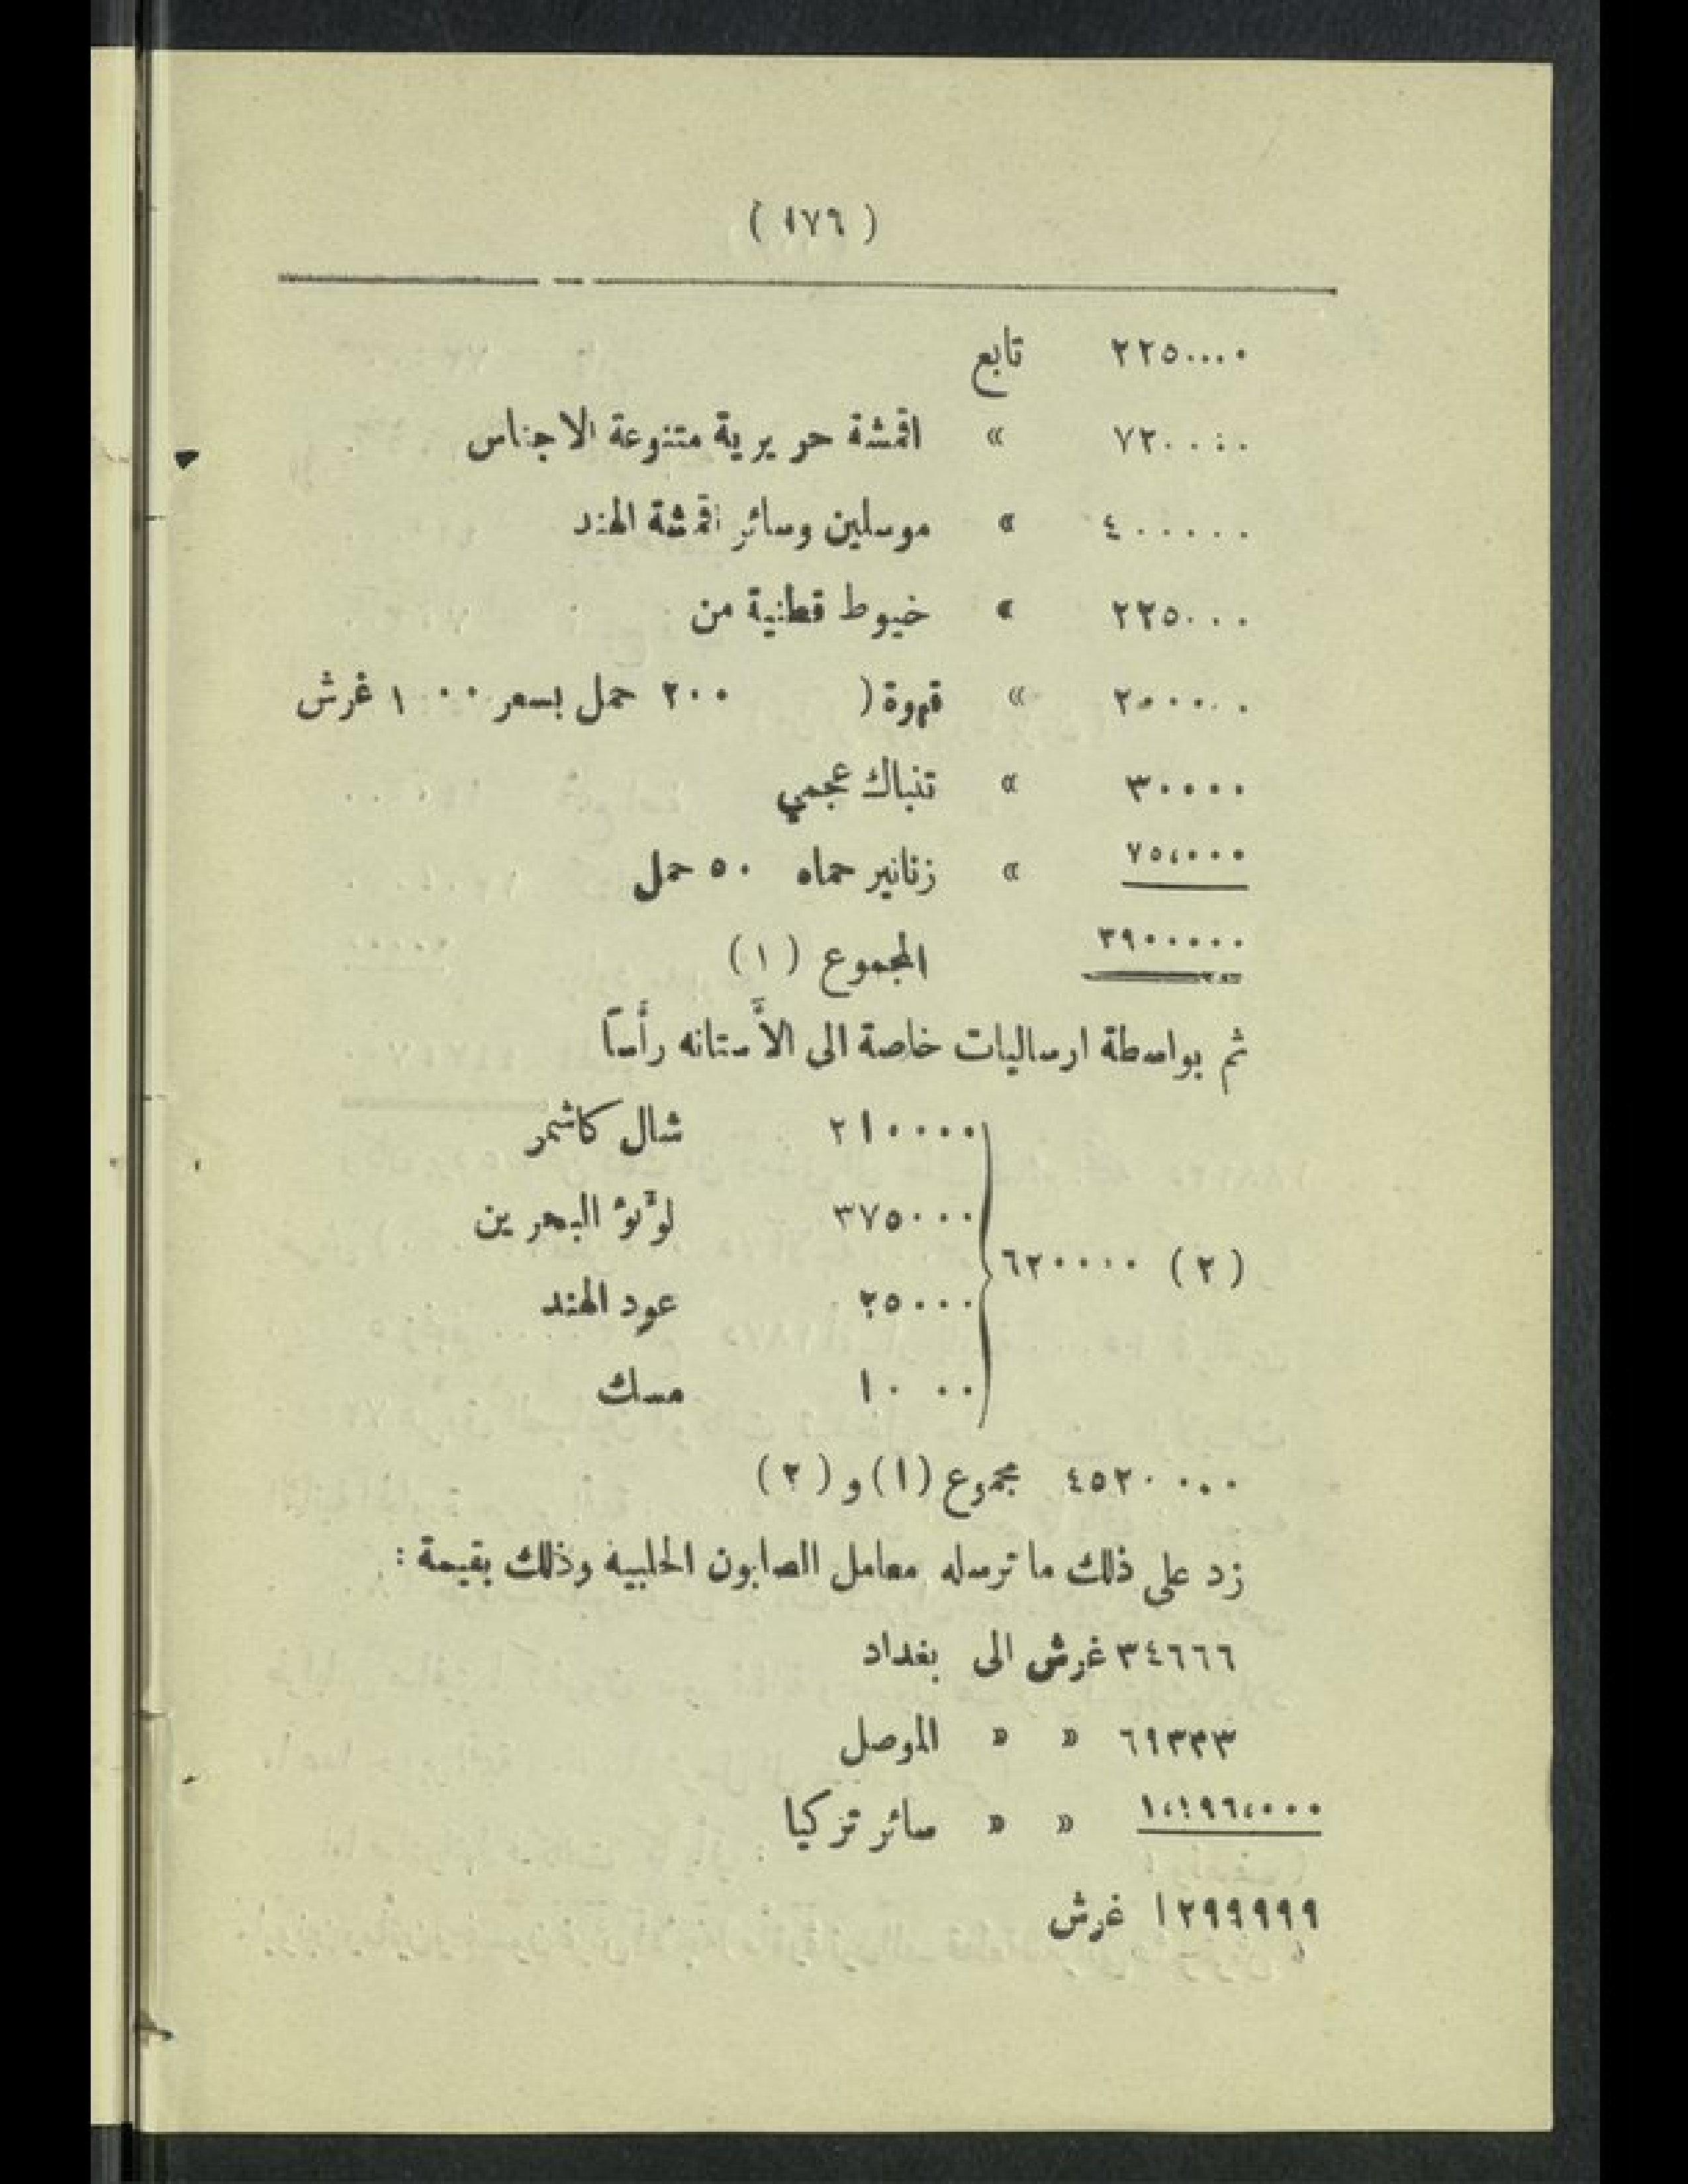 ( ١٧٦ )
٢٢٥٠٠٠٠ تابع
٧٢٠٠٠٠ » اقمشة حريرية متنوعة الاجناس
٤٠٠٠٠٠ » موسلين وسائر اقمشة الهند
٢٢٥٠٠٠ » خيوط قطنية من
٢٠٠٠٠٠ » قهوة ( ٢٠٠ حمل بسعر ١٠٠٠ غرش
٣٠٠٠٠ » تنباك عجمي
٧٥٬٠٠٠ » زنانير حماه ٥٠ حمل
٣٩٠٠٠٠٠ المجموع (١)
ثم بواسطة ارساليات خاصة الى الأستانه رأساً
٢١٠٠٠٠ شال كاشمر
٣٧٥٠٠٠ لؤلؤ البحرين
(٢) ٦٢٠٠٠٠
٢٥٠٠٠ عود الهند
١٠٠٠٠ مسك
٤٥٢٠٠٠٠ مجموع (١) و (٢)
زد على ذلك ما ترسله معامل الصابون الحلبية وذلك بقيمة :
٣٤٦٦٦ غرش الى بغداد
٦٩٣٣٣ » » الموصل
١٬١٩٦٬٠٠٠ » » سائر تركيا
١٢٩٩٩٩٩ غرش